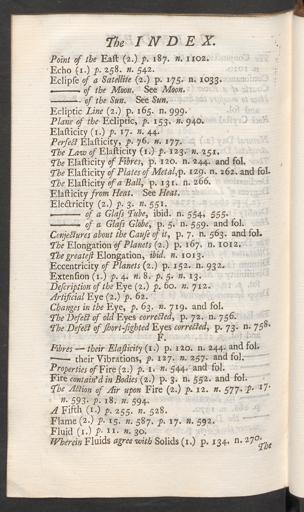 The INDEX.
Point of the East (2.) p. 187. n. 1102.
Echo (1.) p. 258. n. 542.
Eclipse of a Satellite (2.) p. 175. n. 1033.
—— of the Moon. See Moon.
—— of the Sun. See Sun.
Ecliptic Line (2.) p. 165. n. 999.
Plane of the Ecliptic, p. 153. n. 940.
Elasticity (1.) p. 17. n. 44.
Perfect Elasticity, p. 76. n. 177.
The Laws of Elasticity (1.) p. 123. n. 251.
The Elasticity of Fibres, p. 120. n. 244. and fol.
The Elasticity of Plates of Metal, p. 129. n. 262. and fol.
The Elasticity of a Ball, p. 131. n. 266.
Elasticity from Heat. See Heat.
Electricity (2.) p. 3. n. 551.
—— of a Glass Tube, ibid. n. 554. 555.
—— of a Glass Globe, p. 5. n. 559. and fol.
Conjectures about the Cause of it, p. 7. n. 563. and fol.
The Elongation of Planets (2.) p. 167. n. 1012.
The greatest Elongation, ibid. n. 1013.
Eccentricity of Planets (2.) p. 152. n. 932.
Extension (1.) p. 4. n. 8. p. 5. n. 13.
Description of the Eye (2.) p. 60. n. 712.
Artificial Eye (2.) p. 62.
Changes in the Eye, p. 63. n. 719. and fol.
The Defect of old Eyes corrected, p. 72. n. 756.
The Defect of short-sighted Eyes corrected, p. 73. n. 758.
F.
Fibres — their Elasticity (1.) p. 120. n. 244. and fol.
—— their Vibrations, p. 127. n. 257. and fol.
Properties of Fire (2.) p. 1. n. 544. and fol.
Fire contain'd in Bodies (2.) p. 3. n. 552. and fol.
The Action of Air upon Fire (2.) p. 12. n. 577. p. 17.
n. 593. p. 18. n. 594.
A Fifth (1.) p. 255. n. 528.
Flame (2.) p. 15. n. 587. p. 17. n. 592.
Fluid (1.) p. 11. n. 30.
Wherein Fluids agree with Solids (1.) p. 134. n. 270.
The